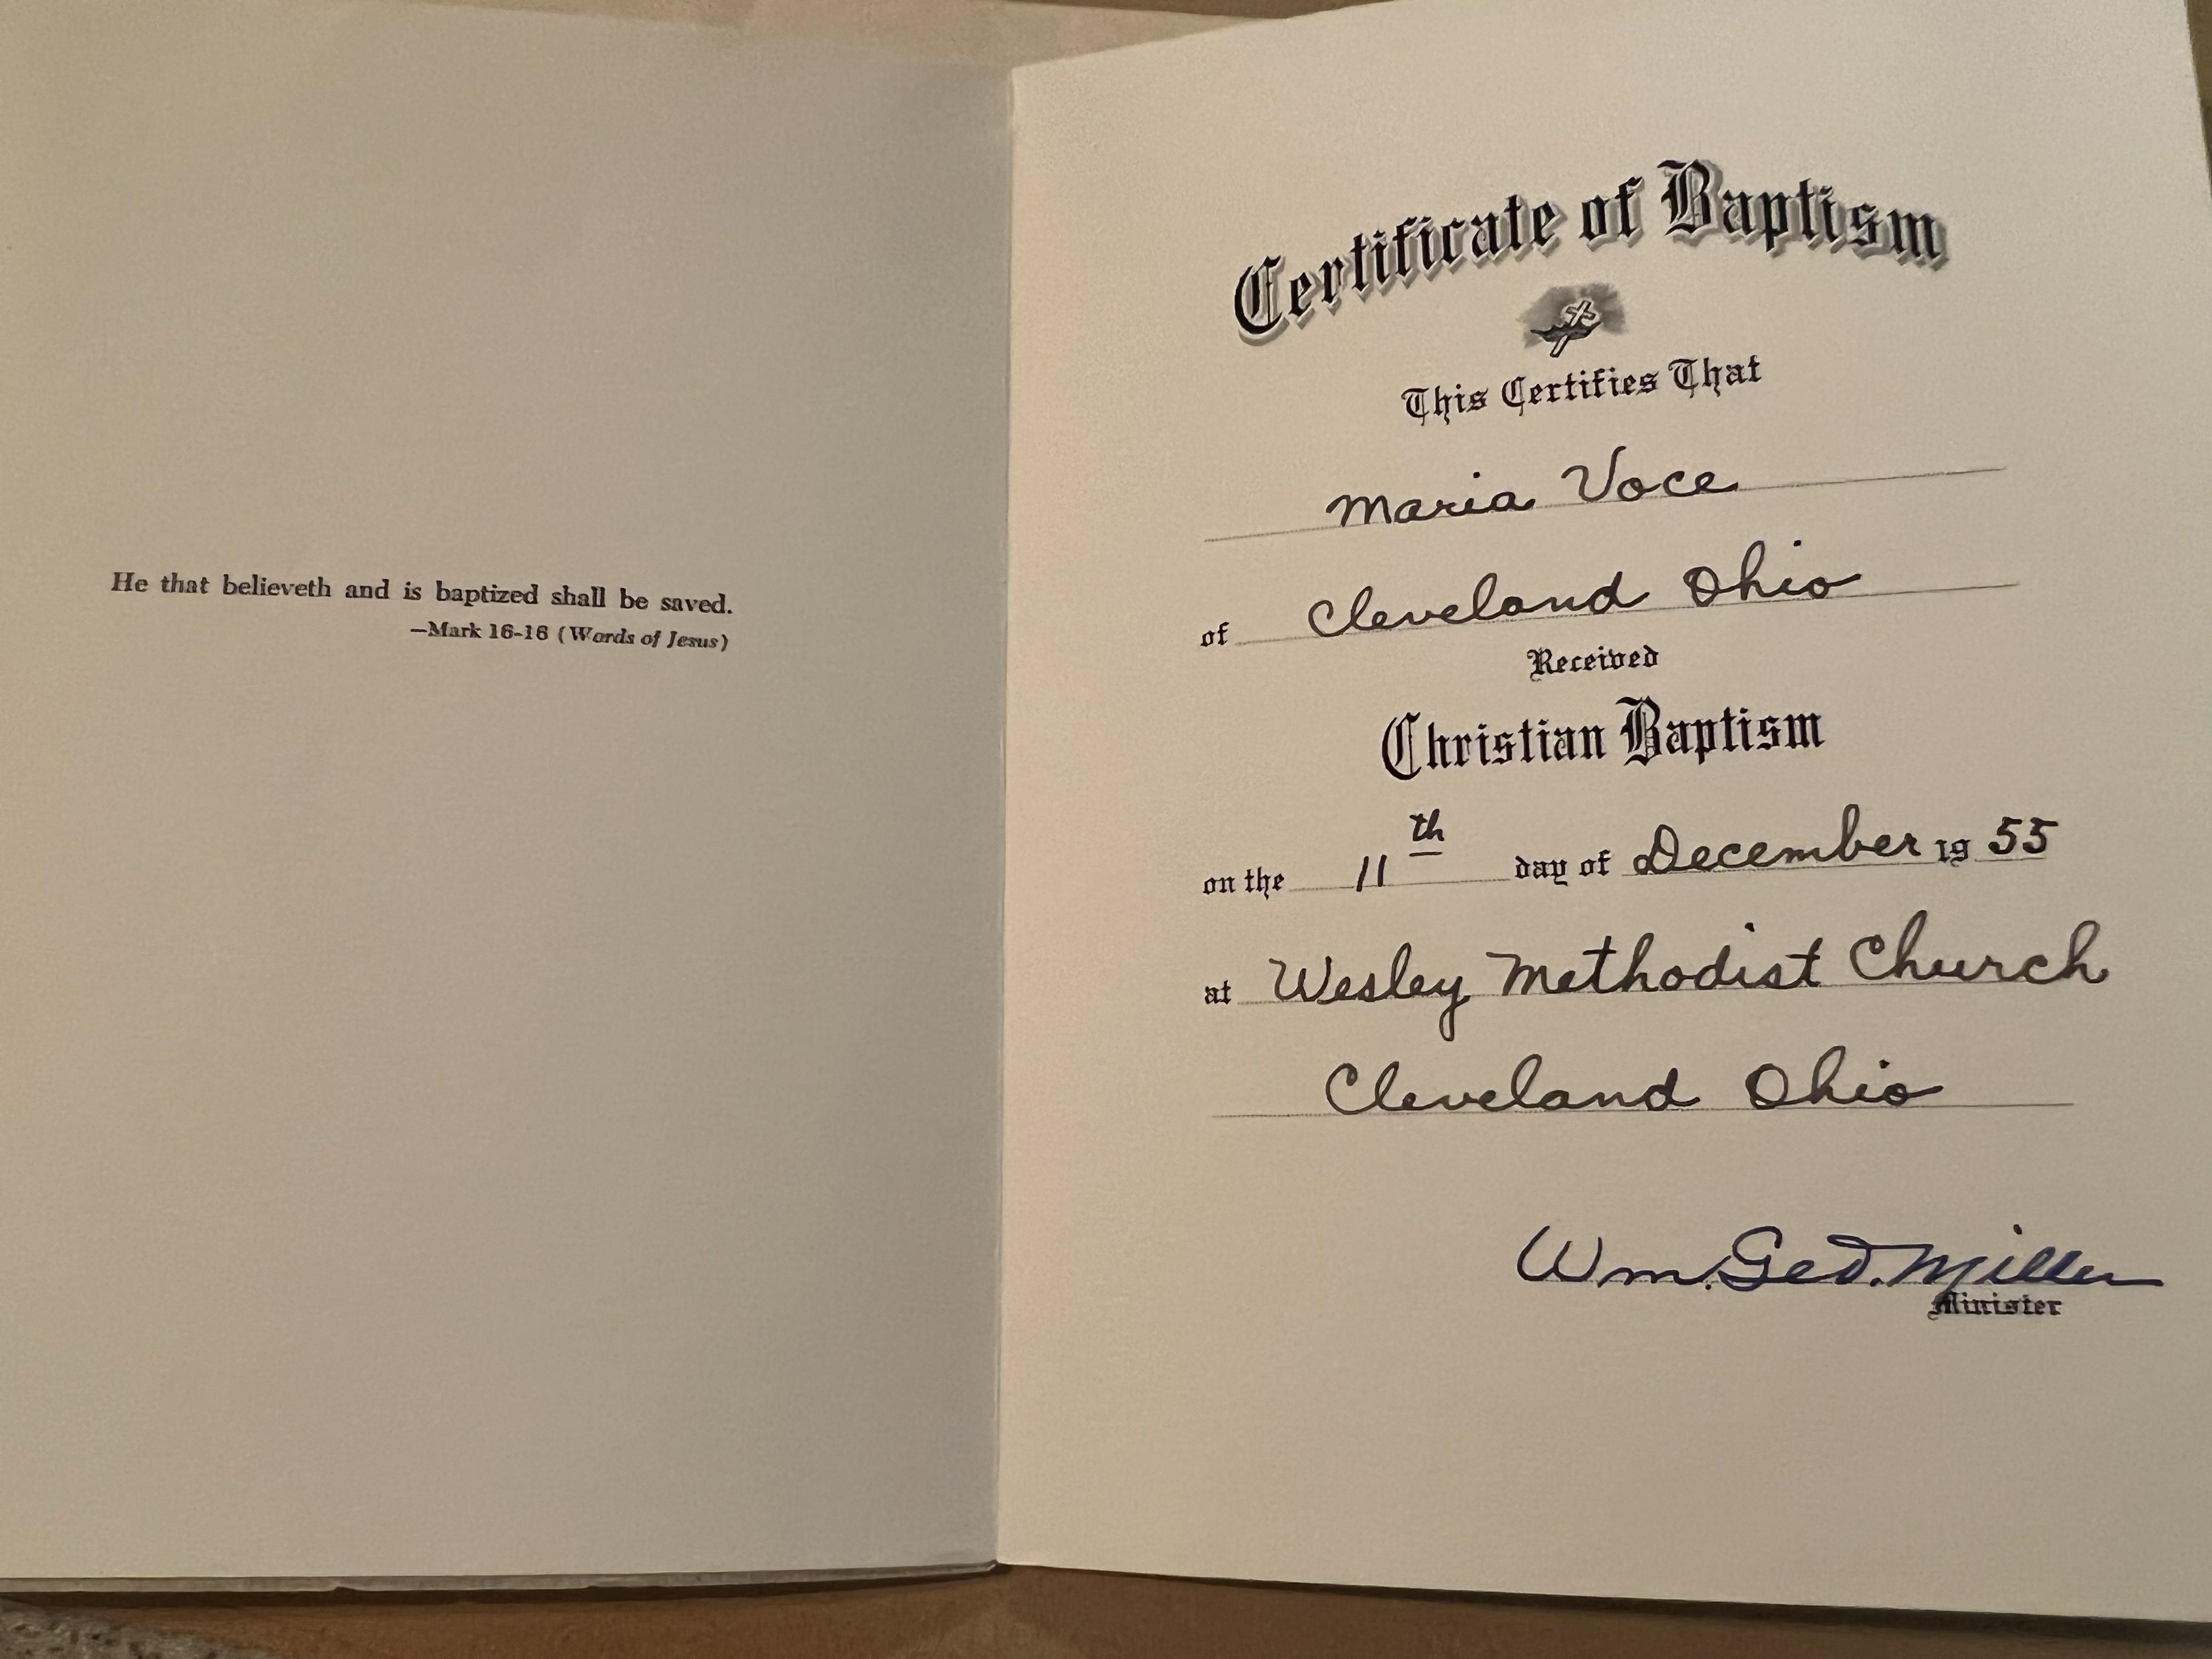 He that believeth and is baptized shall be saved.
—Mark 16-16 (Words of Jesus)
Certificate of Baptism
This Certifies That
Maria Voce
of Cleveland Ohio
Received
Christian Baptism
on the 11th day of December 1955
at Wesley Methodist Church
Cleveland Ohio
Wm. Geo. Miller
Minister